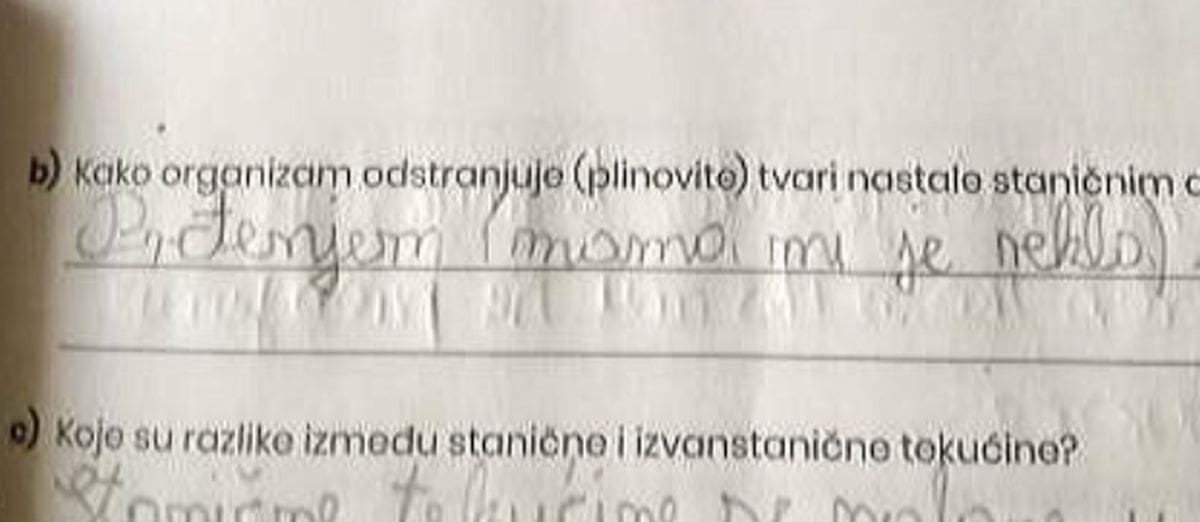 b) Kako organizam odstranjuje (plinovite) tvari nastale staničnim
Prđenjem (mama mi je rekla)
c) Koje su razlike između stanične i izvanstanične tekućine?
stanične tekućine se